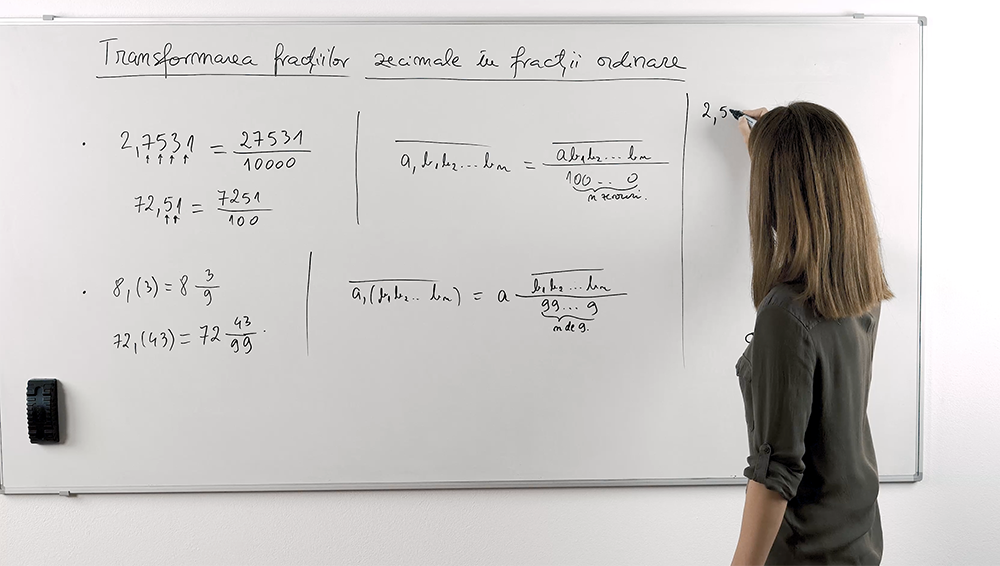 Transformarea fracțiilor zecimale în fracții ordinare
2,7531 = 27531/10000
72,51 = 7251/100
a,b₁b₂...bₙ = ab₁b₂...bₙ/100...0
n zerouri.
8,(3) = 8 3/9
72,(43) = 72 43/99.
a,(b₁b₂...bₙ) = a b₁b₂...bₙ/99...9
n de 9.
2,5